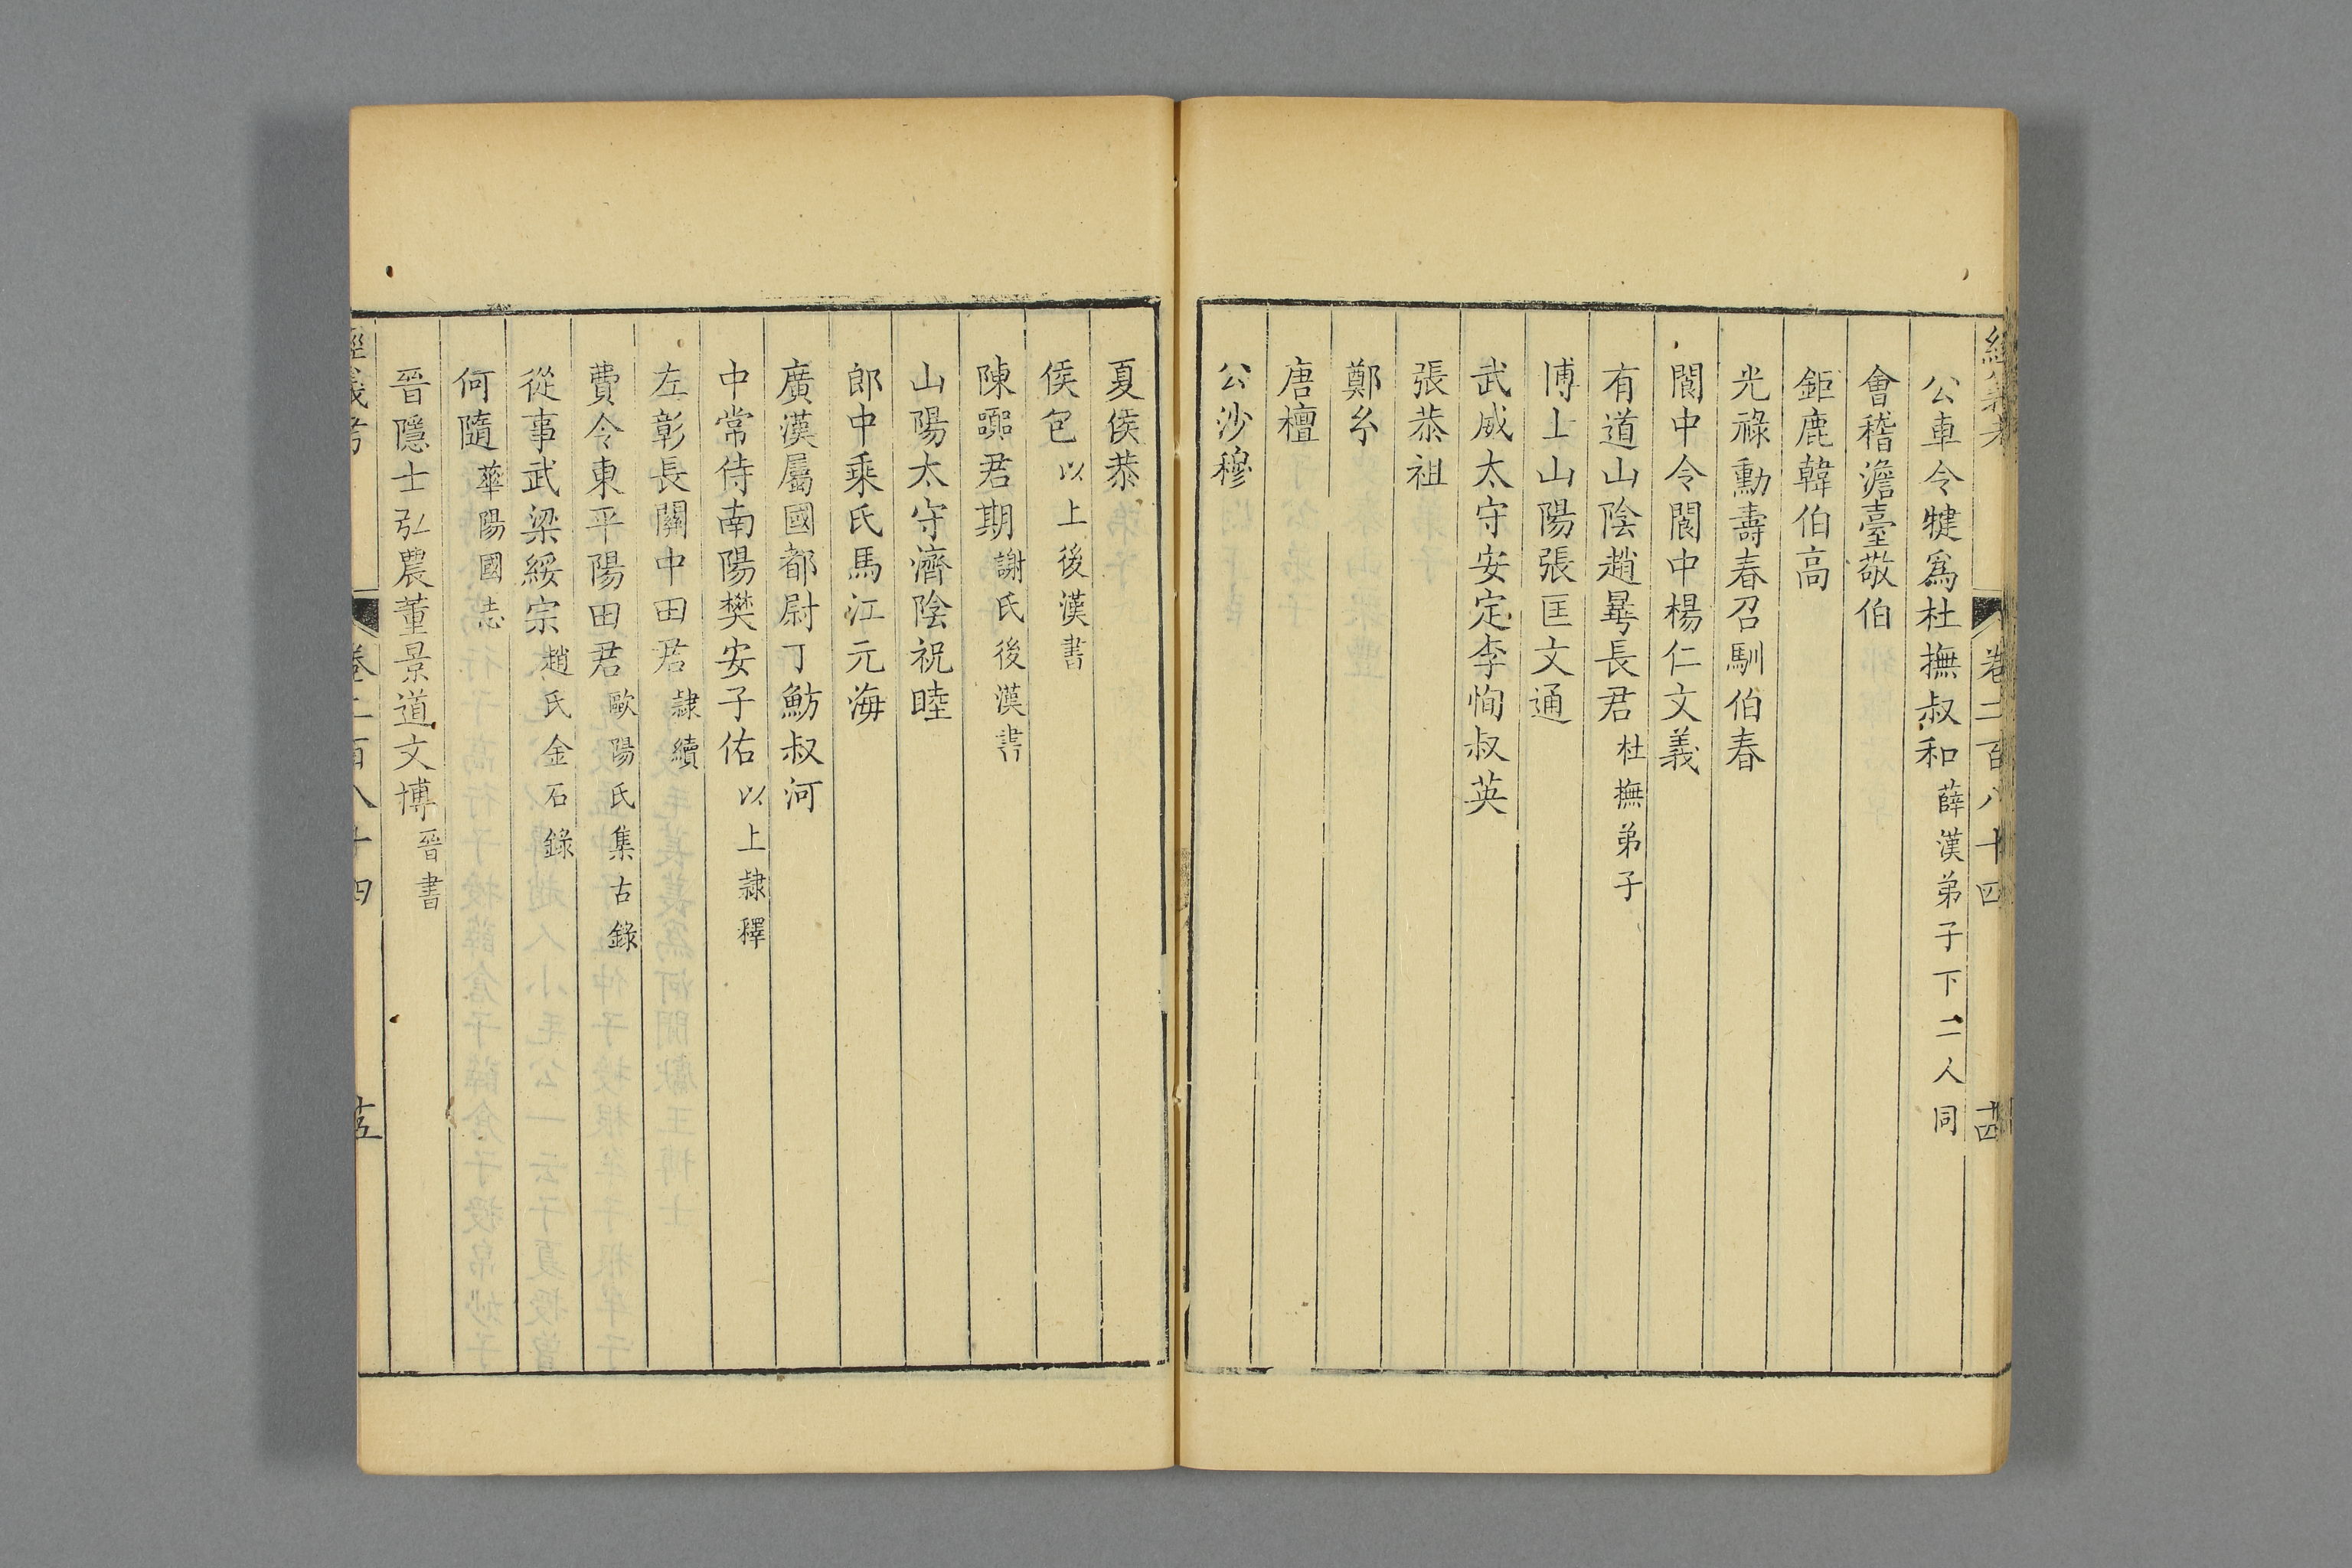 經義考 卷二百八十四 十四
公車令犍爲杜撫叔和薛漢弟子下二人同
會稽澹臺敬伯
鉅鹿韓伯高
光祿勳壽春召馴伯春
閬中令閬中楊仁文義
有道山陰趙曅長君杜撫弟子
博士山陽張匡文通
武威太守安定李恂叔英
張恭祖
鄭𢆯
唐檀
公沙穆
夏侯恭
侯包以上後漢書
陳囂君期謝氏後漢書
山陽太守濟陰祝睦
郎中乘氏馬江元海
廣漢屬國都尉丁魴叔河
中常侍南陽樊安子佑以上隷釋
左彰長關中田君隷續
費令東平陽田君歐陽氏集古錄
從事武梁綏宗趙氏金石錄
何隨華陽國志
晉隱士弘農董景道文博晉書
經義考 卷二百八十四